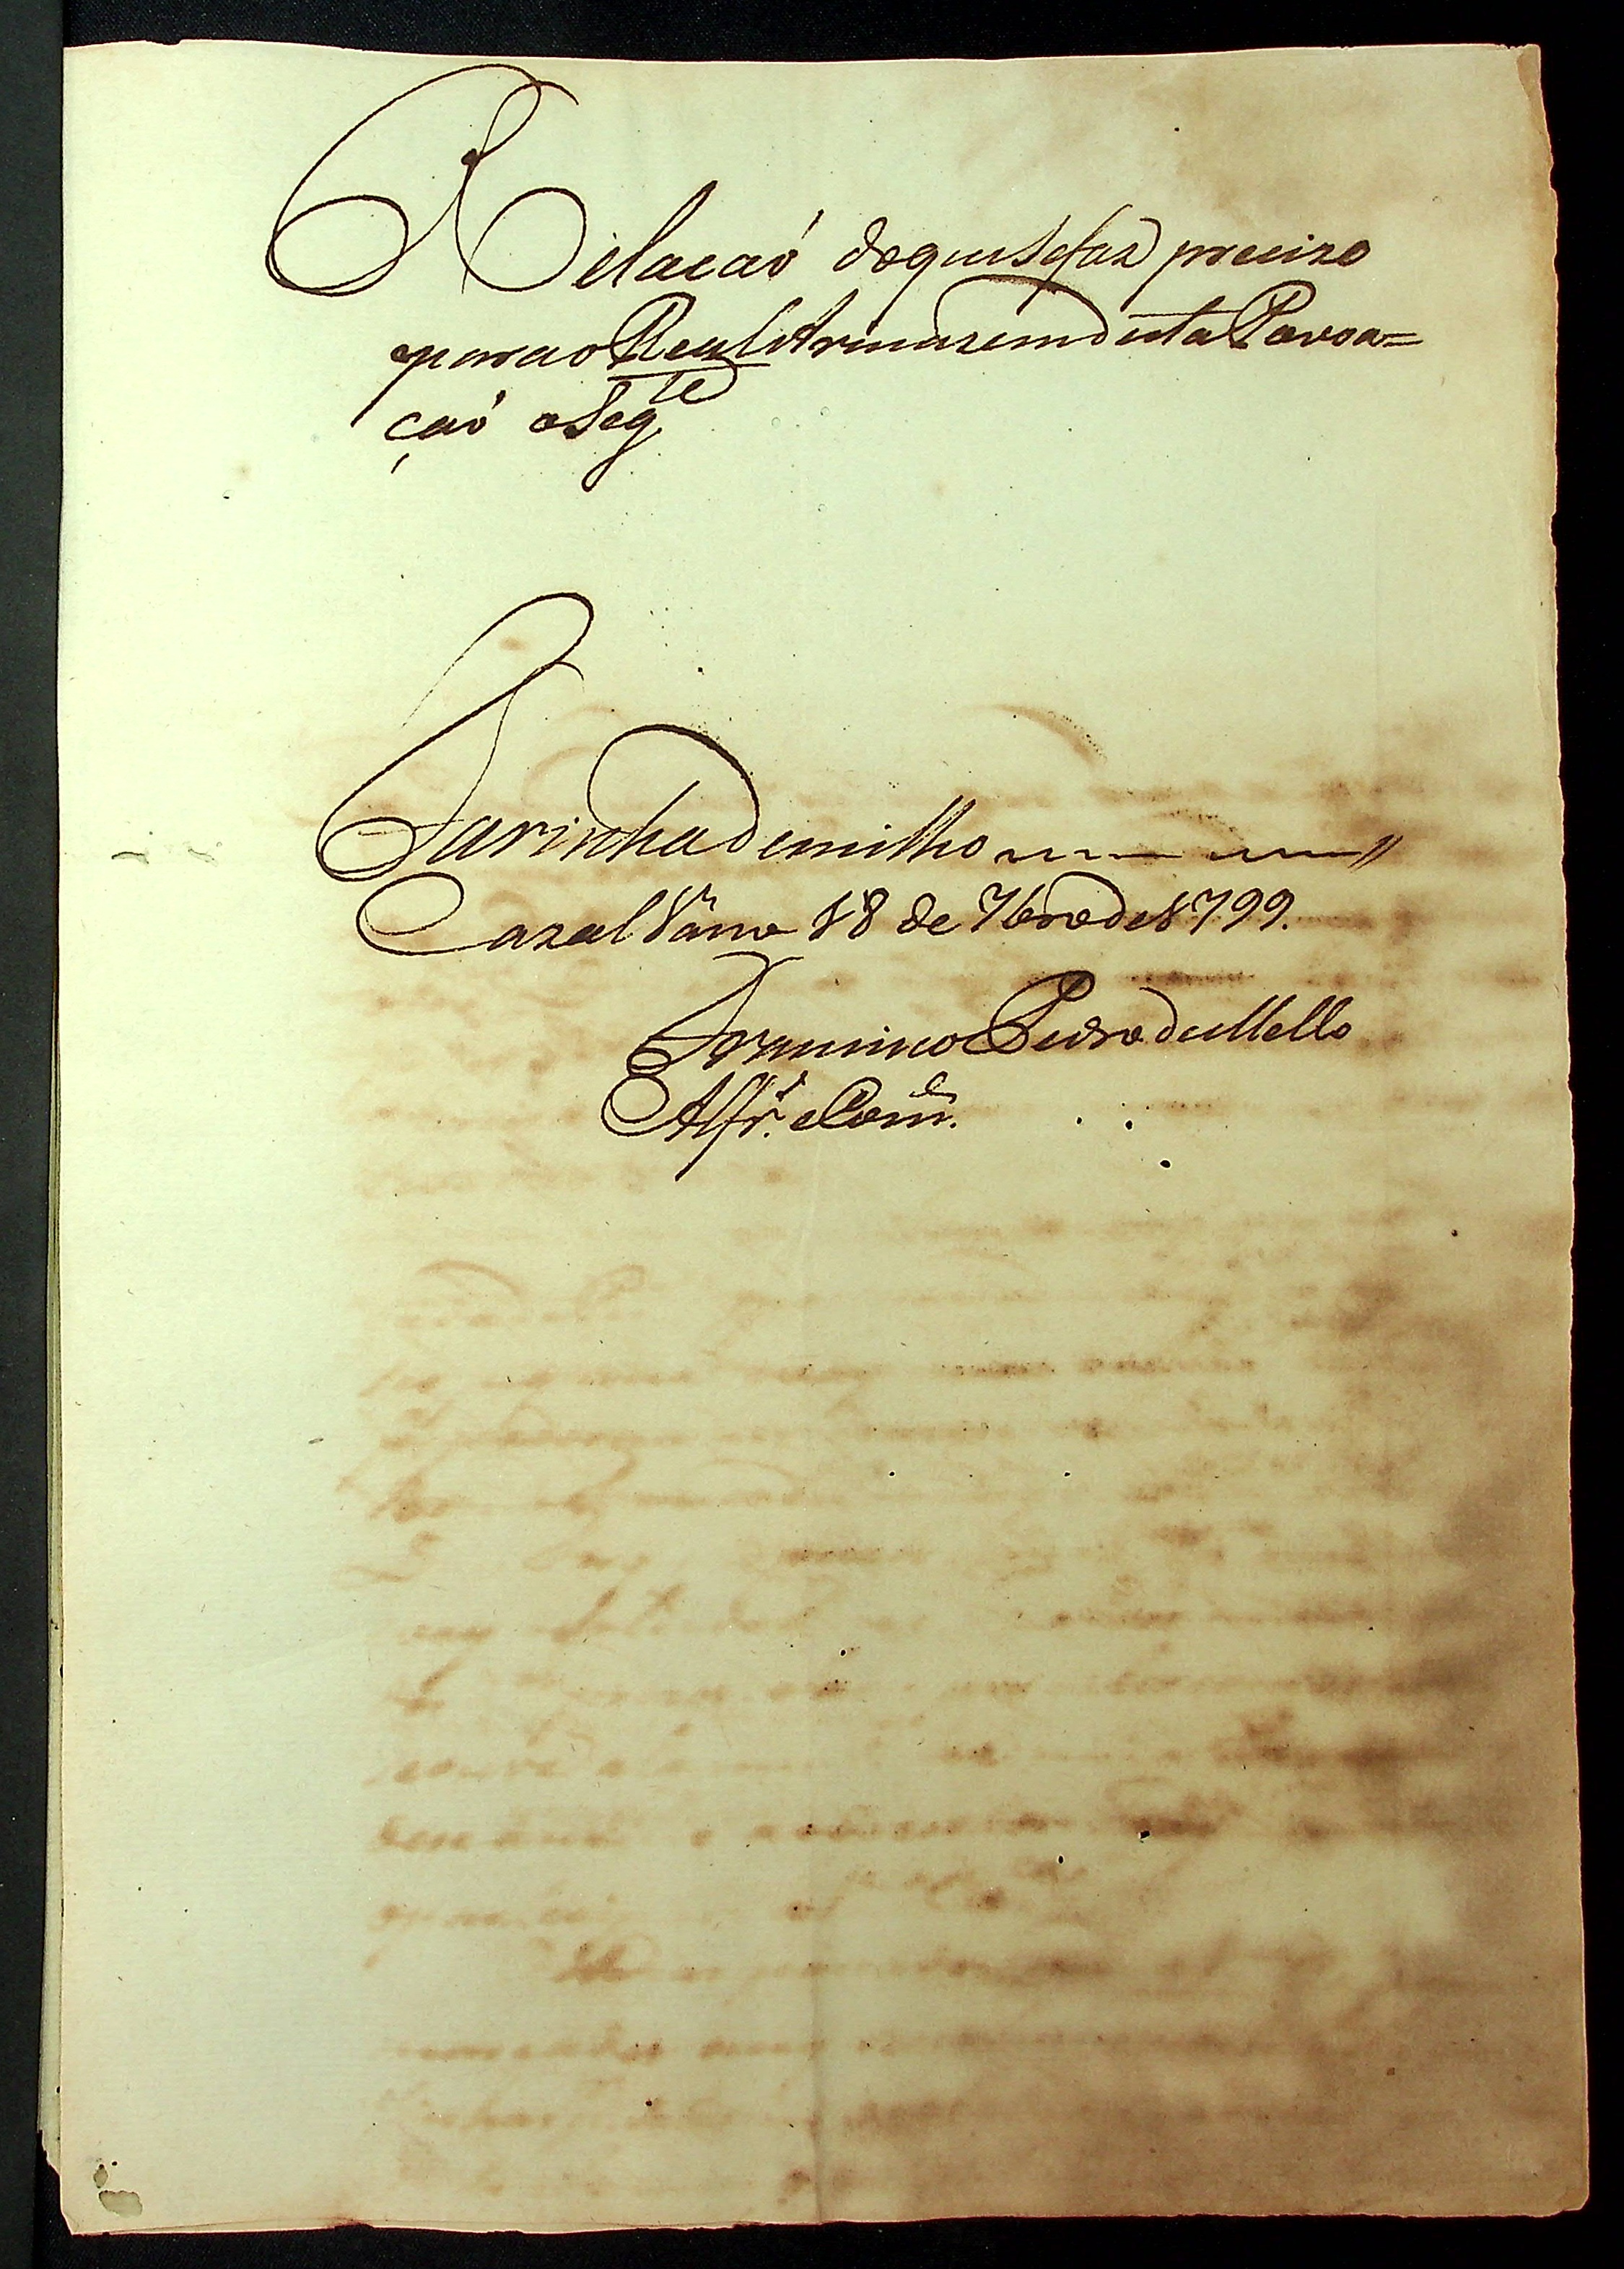 Relacaó doque se faz precizo
para o Real Armazem desta Povoa=
çaó o Seg.te
Farinha de milho
Cazal Vasco 18 de 7bro de 1799.
Francisco Pedro de Mello
Alfr.s e Com.e